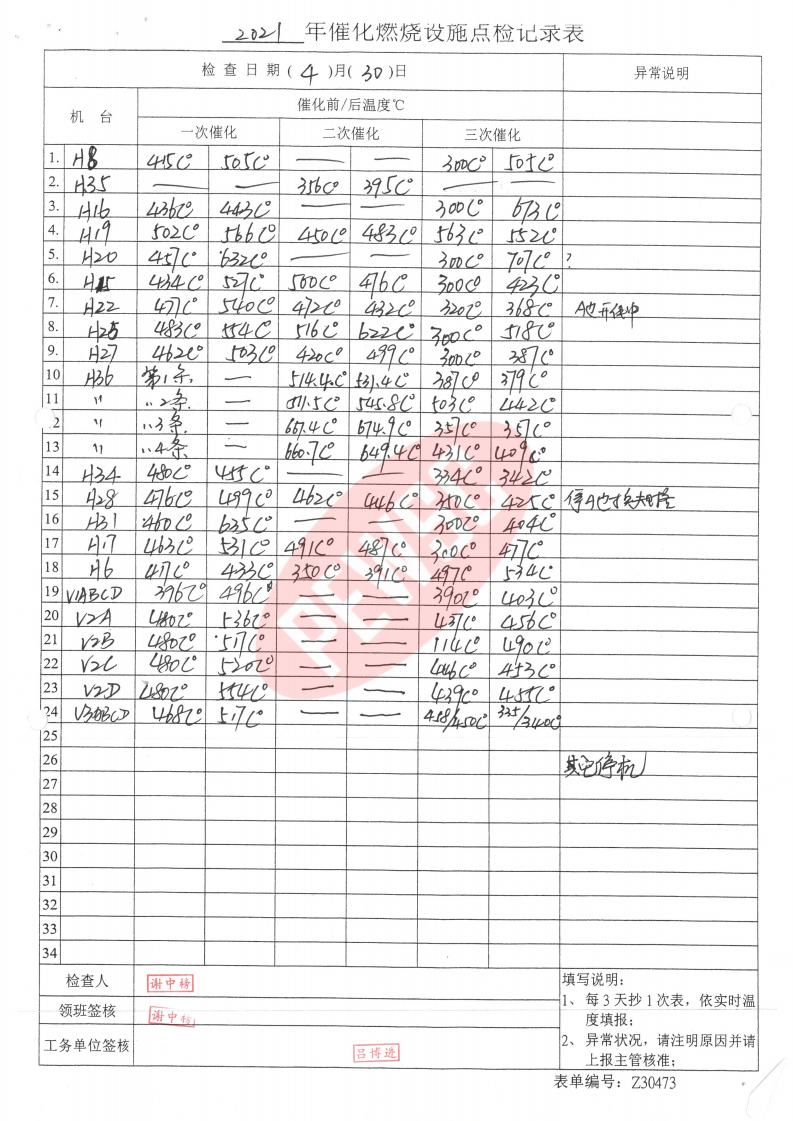 2021 年催化燃烧设施点检记录表
检查日期( 4 )月( 30 )日 异常说明
机 台 催化前/后温度℃
一次催化 二次催化 三次催化
1. H8 415C° 505C° — — 300C° 505C°
2. H35 — — 356C° 395C° — —
3. H16 436C° 443C° — — 300C° 673C°
4. H19 502C° 566C° 450C° 483C° 563C° 552C°
5. H20 457C° 632C° — — 300C° 707C° ?
6. H15 434C° 527C° 500C° 476C° 300C° 423C°
7. H22 471C° 540C° 472C° 432C° 320C° 368C°
8. H25 483C° 554C° 516C° 622C° 300C° 518C°
9. H27 462C° 503C° 420C° 499C° 300C° 387C°
10 H36 第1条 — 514.4C° 531.4C° 387C° 379C°
11 〃 〃2条 — 511.5C° 545.8C° 503C° 442C°
2 〃 〃3条 — 667.4C° 674.9C° 357C° 357C°
13 〃 〃4条 — 660.7C° 649.4C° 431C° 409C°
14 H34 480C° 455C° — — 334C° 342C°
15 H28 476C° 499C° 462C° 446C° 350C° 425C°
16 H31 460C° 635C° — — 300C° 404C°
17 H17 463C° 531C° 491C° 487C° 300C° 477C°
18 H6 471C° 433C° 350C° 391C° 497C° 534C°
19 V1ABCD 396C° 496C° — — 390C° 403C°
20 V2A 480C° 536C° — — 437C° 456C°
21 V2B 480C° 517C° — — 114C° 490C°
22 V2C 480C° 520C° — — 446C° 453C°
23 V2D 480C° 554C° — — 439C° 455C°
24 V3ABCD 468C° 517C° — — 458/450C° 335/340C°
25
26 其它停机
27
28
29
30
31
32
33
34
检查人 谢中榜
领班签核 谢中榜
工务单位签核 吕博选
填写说明:
1、每3天抄1次表，依实时温
度填报;
2、异常状况，请注明原因并请
上报主管核准;
表单编号：Z30473